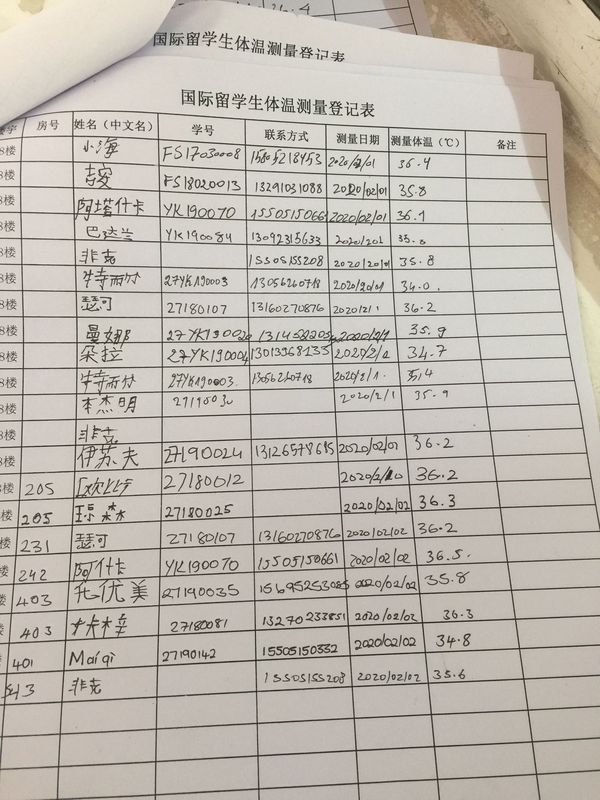 36.4
国际留学生体温测量登记表
国际留学生体温测量登记表
楼宇 房号 姓名（中文名） 学号 联系方式 测量日期 测量体温（℃） 备注
8楼 小海 FS17030008 15805218453 2020/2/01 36.4
8楼 FS18020013 13291031088 2020/02/01 35.8
8楼 阿塔什卡 YK190070 1550515066 2020/02/01 36.1
8楼 巴达兰 YK190084 13092315633 2020/202
8楼 非克 15505155208 2020/20/01 35.8
8楼 特而尔 27YK190003 13056260718 2020/20/01 34.0.
8楼 瑟可 27180107 13160270876 2020/2/1 36.2
8楼 曼娜 35.9
8楼 朵拉 27YK190004 2020/2/2 34.7
8楼 特而尔 27YK190003. 13056260718 2020/2/1. 35,4
8楼 本杰明 2020/2/1 35.9
8楼 非克
8楼 伊苏夫 27190024 13126578685 2020/02/01 36.2
8楼 205 27180012 36.2
8楼 205 琼森 27180025 2020/02/02 36.3
8楼 231 瑟可 27180107 13160270876 2020/02/02 36.2
8楼 242 阿什卡 YK190070 15505150661 2020/02/02 36.5.
8楼 403 托优美 27190035 2020/02/02 35.8
8楼 403 27180081 13270233851 2020/02/02 36.3
8楼 401 Maíqì 27190142 15505150332 2020/02/02 34.8
413 非克 15505155208 2020/02/02 35.6